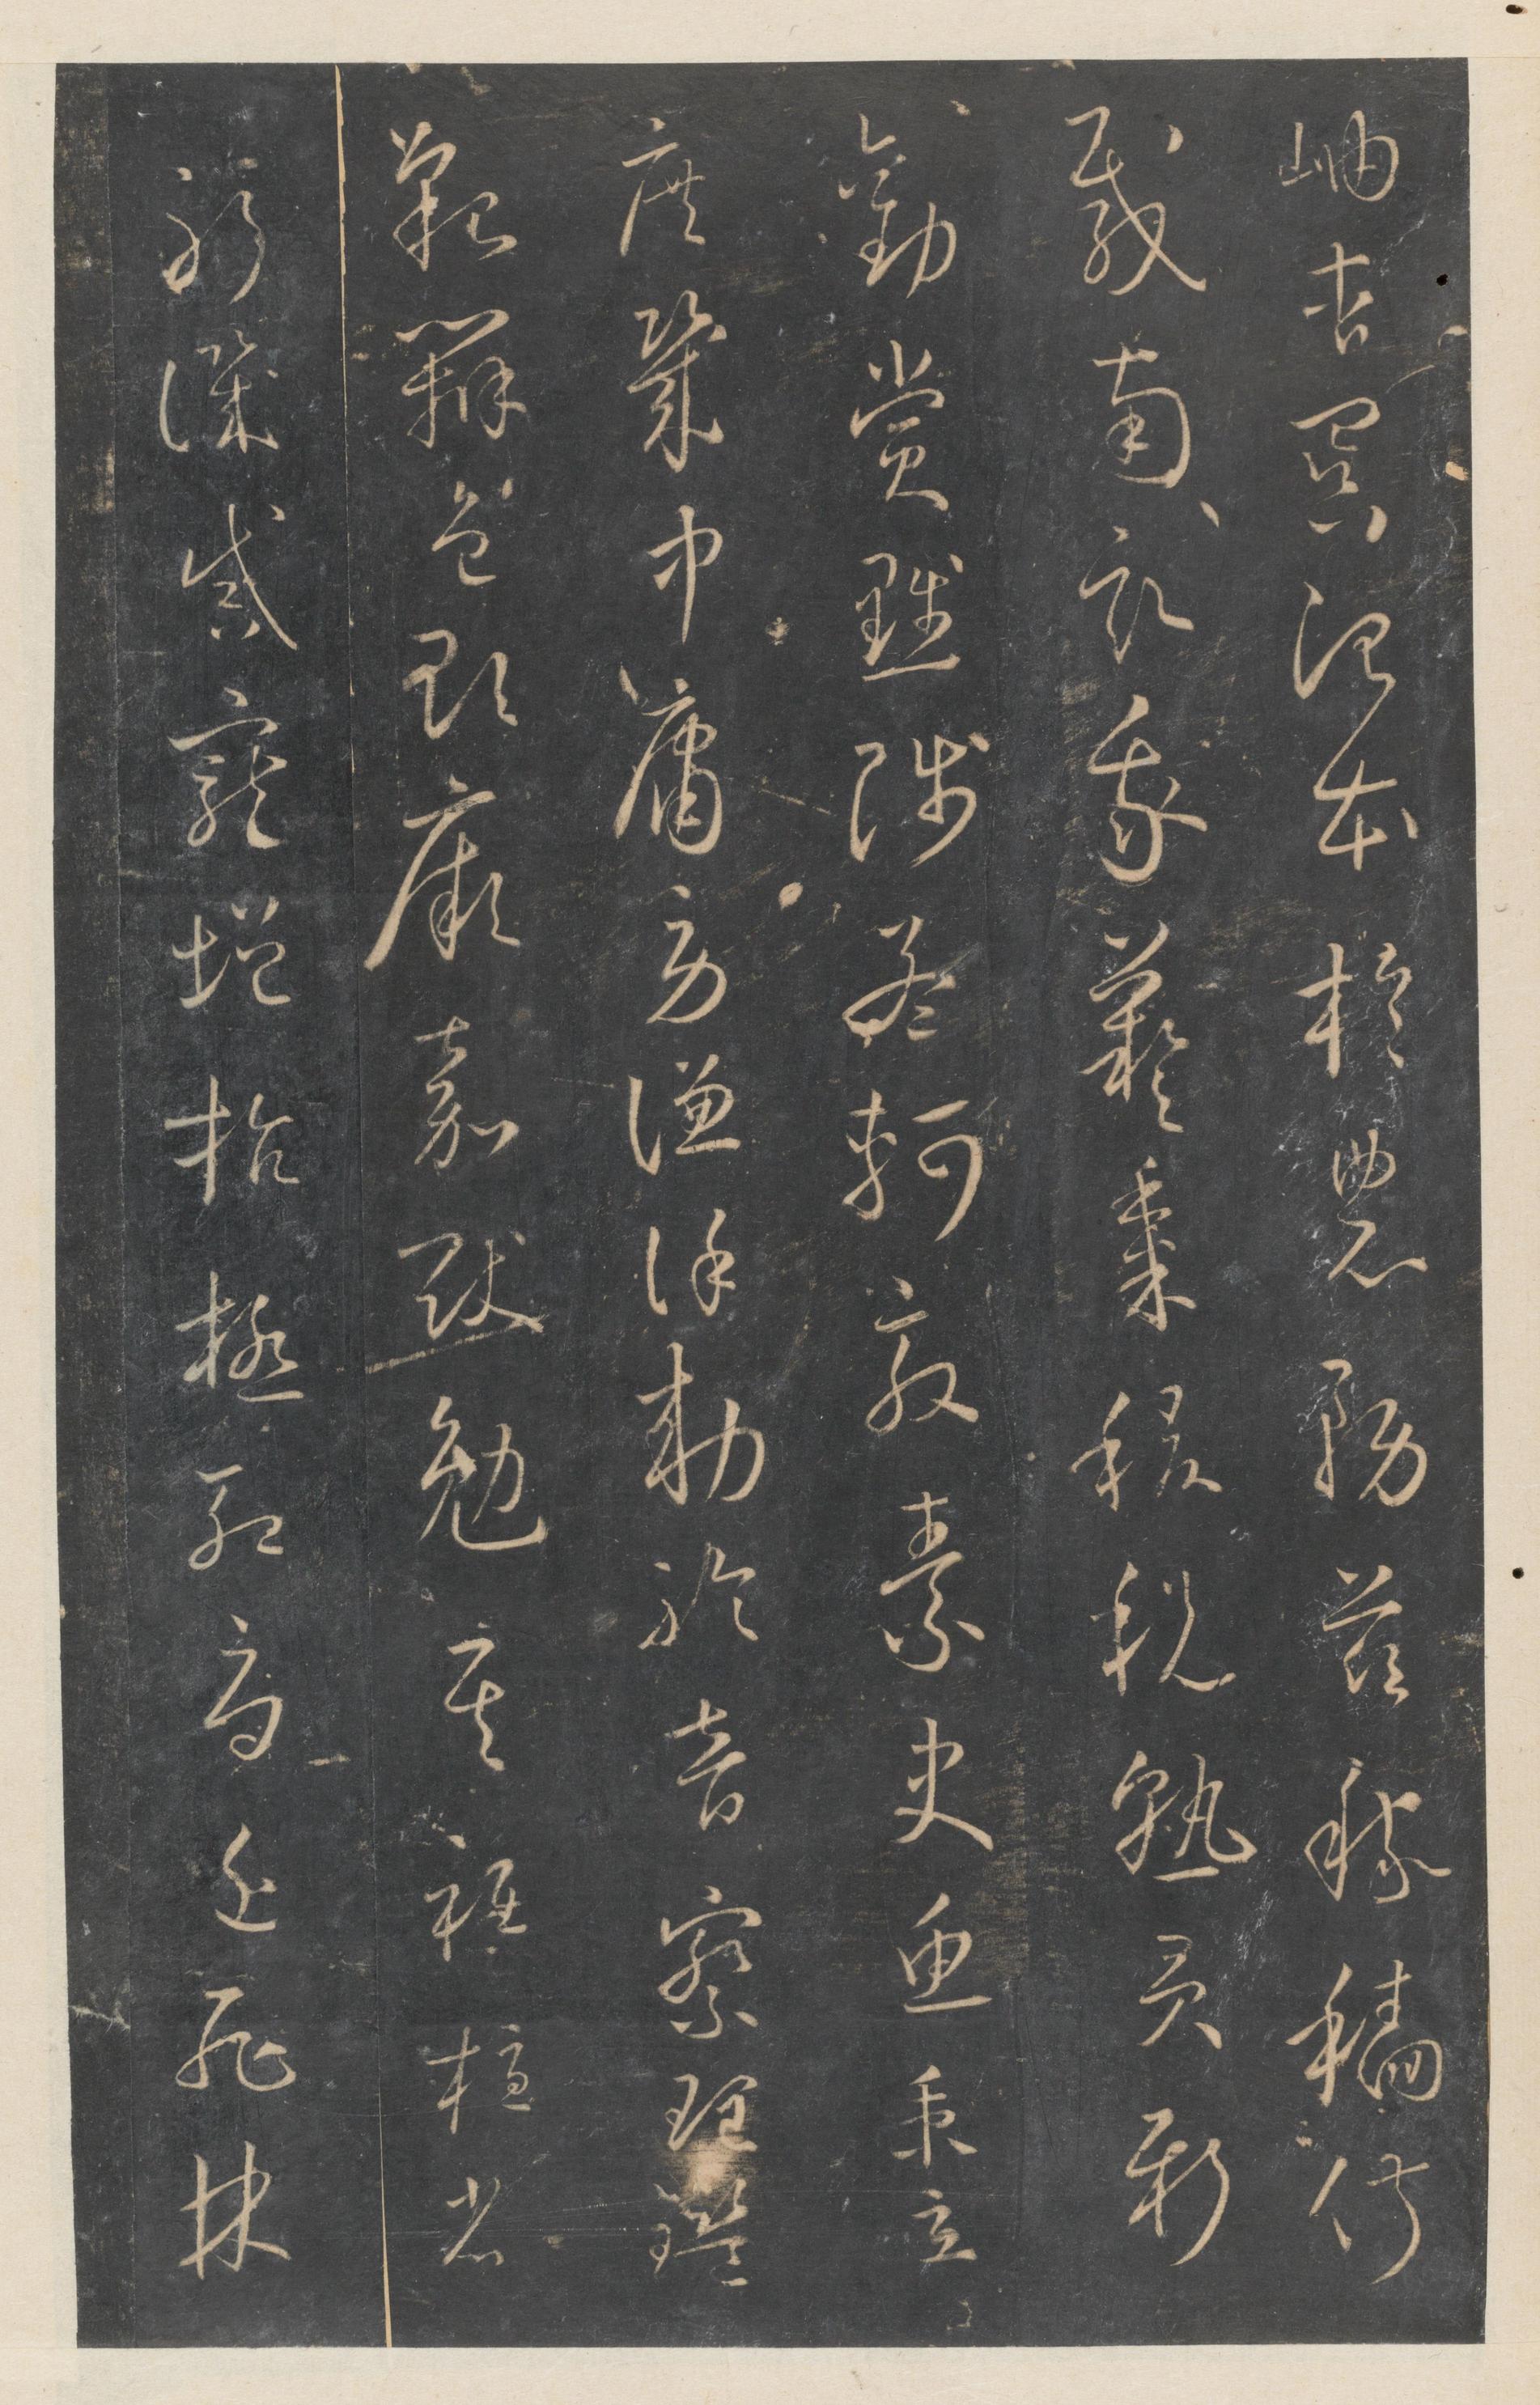 岫杳冥治本於農務茲稼穡俶
載南畝我藝黍稷稅熟貢新
勸賞黜陟孟軻敦素史魚秉直
庶幾中庸勞謙謹敕聆音察理鑑
貌辨色貽厥嘉猷勉其祗植省
躬譏誡寵增抗極殆辱近恥林